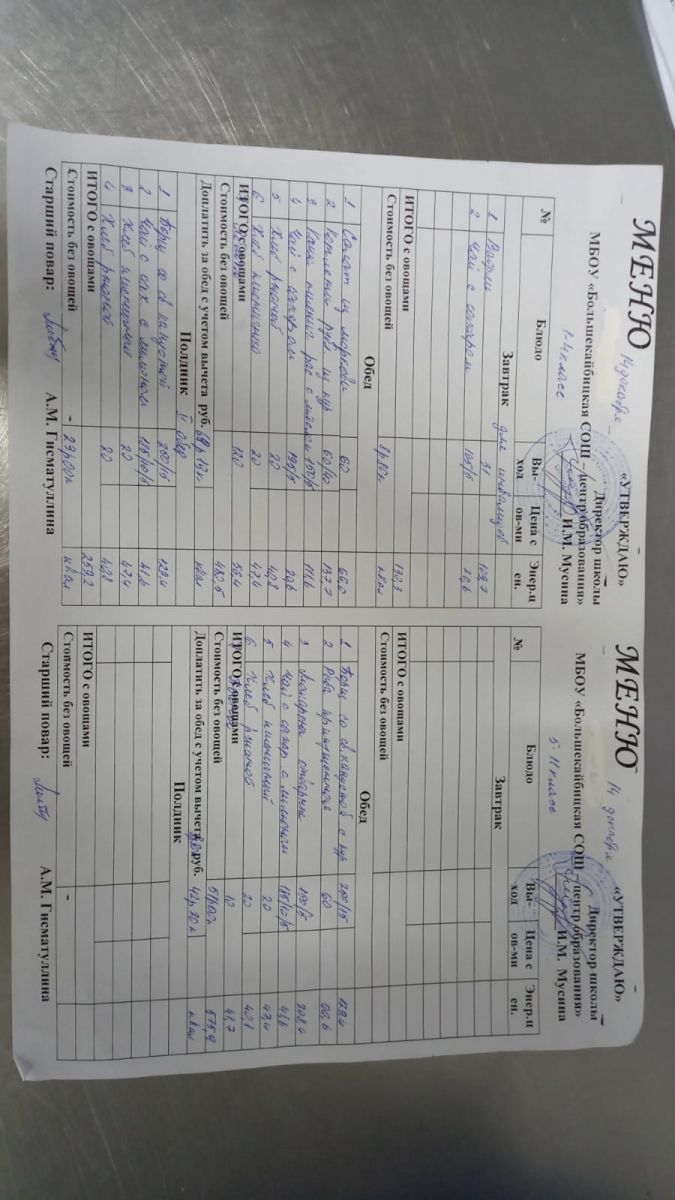 МЕНЮ 14 декабря
«УТВЕРЖДАЮ»
Директор школы
МБОУ «Большекайбицкая СОШ - центр образования»
И.М. Мусина
1-4 класс
№ Блюдо Вы-ход Цена с ов-ми Энер.ц ен.
Завтрак для инвалидов
1 Вафли 31 109,7
2 Чай с сахаром 195/5 20,6
ИТОГО с овощами 130,3
Стоимость без овощей 8р80к ккал
Обед
1 Салат из моркови 60
2 Котлета из кур 60/40 137,7
3 Каша с маслом 150/5
4 Чай с сахаром 195/5 20,6
5 Хлеб ржаной 20 40,8
6 Хлеб пшеничный 20 47,4
ИТОГО с овощами 120
Стоимость без овощей 482,5
Доплатить за обед с учетом вычета руб. ккал
Полдник
1 Борщ со св капустой 250/15 129,4
2 Чай с сах с лимоном 185/10/5 41,6
3 Хлеб пшеничный 20 47,4
4 Хлеб ржаной 20 40,8
ИТОГО с овощами 259,2
Стоимость без овощей - 23р00к ккал
Старший повар: А.М. Гисматуллина
МЕНЮ 14 декабря
«УТВЕРЖДАЮ»
Директор школы
МБОУ «Большекайбицкая СОШ - центр образования»
И.М. Мусина
5-11 класс
№ Блюдо Вы-ход Цена с ов-ми Энер.ц ен.
Завтрак
ИТОГО с овощами
Стоимость без овощей
Обед
1 Борщ со св.капустой с кур 250/15 129,4
2 Рыба припущенная 60
3 Макароны отварные 150/5 208,4
4 Чай с сахар с лимоном 185/10/5 41,6
5 Хлеб пшеничный 20 47,4
6 Хлеб ржаной 20 40,8
ИТОГО с овощами 10 41,7
Стоимость без овощей 575,9
Доплатить за обед с учетом вычета руб. 42р20к ккал
Полдник
ИТОГО с овощами
Стоимость без овощей -
Старший повар: А.М. Гисматуллина